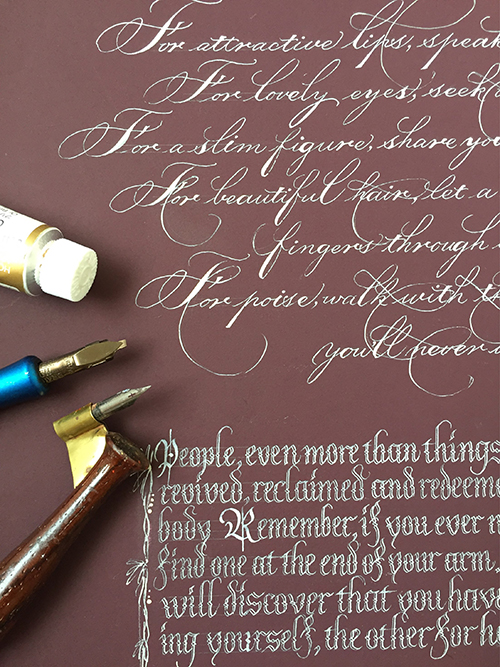 For attractive lips, speak
For lovely eyes, seek
For a slim figure, share you
For beautiful hair, let a
fingers through
For poise, walk with t
you'll never
People, even more than things
revived, reclaimed and redeeme
body Remember, if you ever n
find one at the end of your arm.
will discover that you have
ing yourself, the other for he